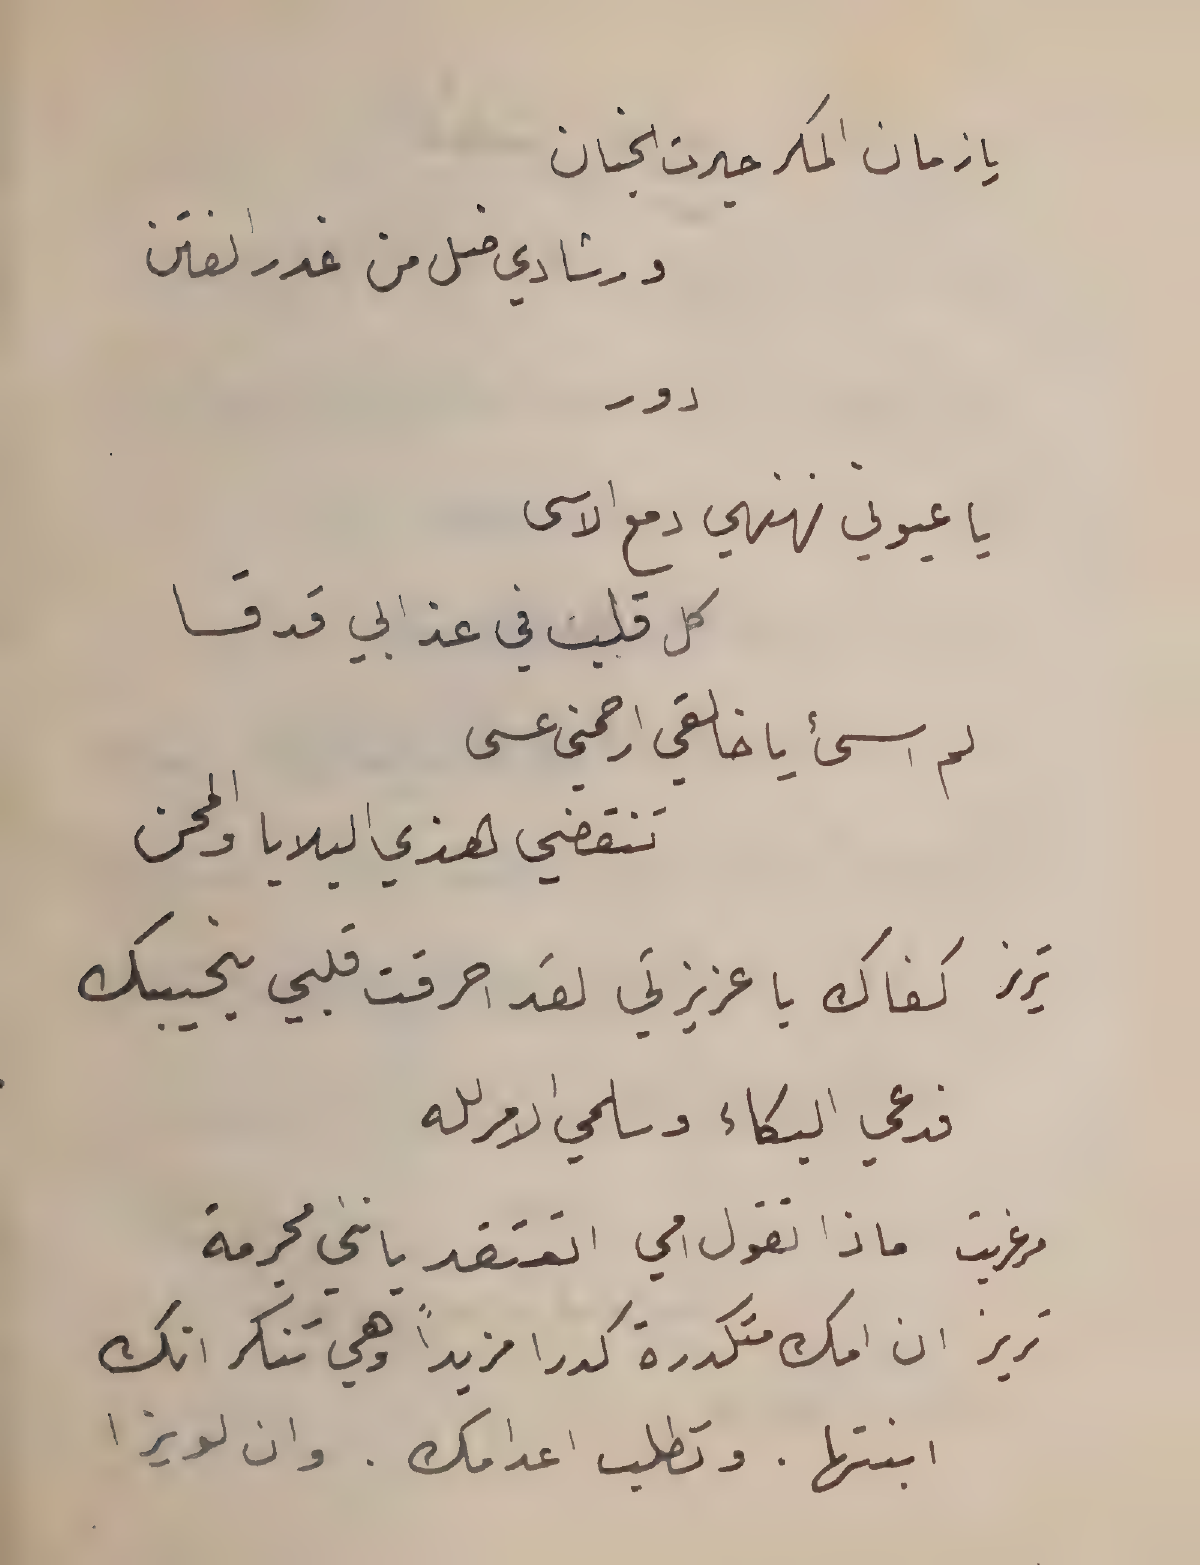 يا زمان المكر حيرت الجنان
ورشادي ضل من غدر الفتن
دور
يا عيوني نهنهي دمع الاسى
كل قلب في عذابي قد قسا
لم اسئ يا خالقي ارحمني عسى
تنقضي هذي البلايا والمحن
تريز كفاك يا عزيزتي لقد احرقت قلبي بنحيبك
فدعي البكاء وسلمي الامر لله
مرغريت ماذا تقول امي اتعتقد بانني مجرمة
تريز ان امك متكدرة كدرا مزيداً وهي تنكر انك
ابنتها . وتطلب اعدامك . وان لويزا